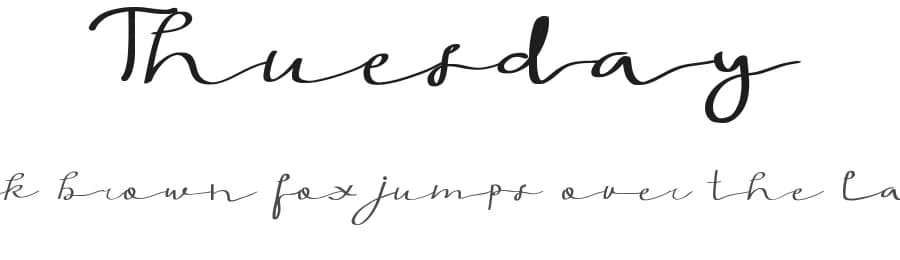 Thuesday
k brown fox jumps over the la